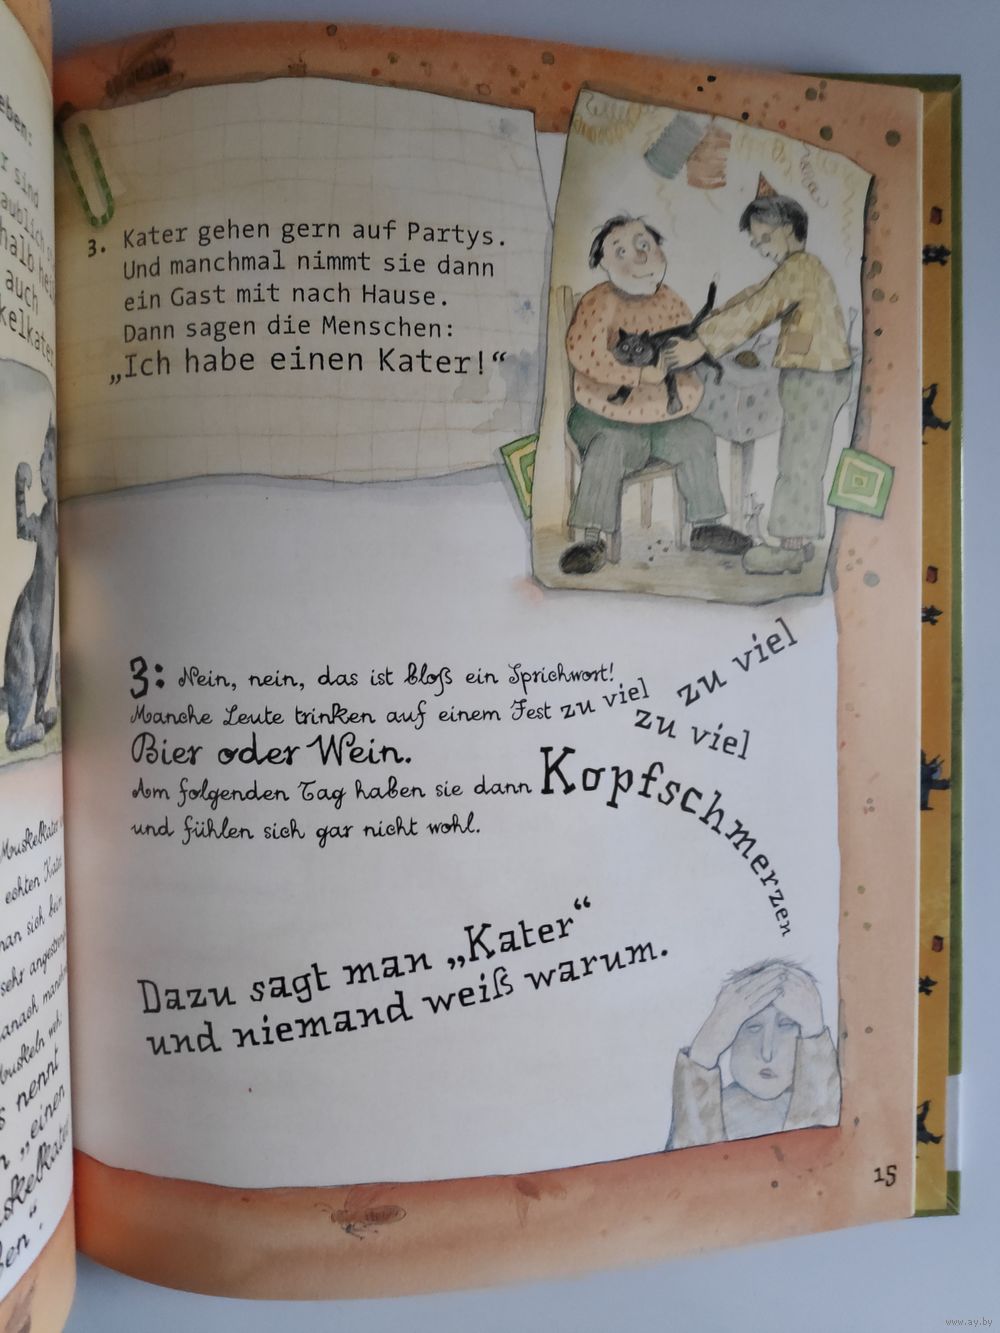 eben:
r sind
aublich
halb
auch
kelkater
3. Kater gehen gern auf Partys.
Und manchmal nimmt sie dann
ein Gast mit nach Hause.
Dann sagen die Menschen:
„Ich habe einen Kater!“
3: Nein, nein, das ist bloß ein Sprichwort!
Manche Leute trinken auf einem Fest zu viel zu viel zu viel
Bier oder Wein.
Am folgenden Tag haben sie dann Kopfschmerzen
und fühlen sich gar nicht wohl.
Dazu sagt man „Kater“
und niemand weiß warum.
Muskelkater
echten Kater
man sich beim
sehr angestren
danach manchm
Muskeln weh.
s nennt
n „einen
uskelkater
ben“.
15
www.ay.by